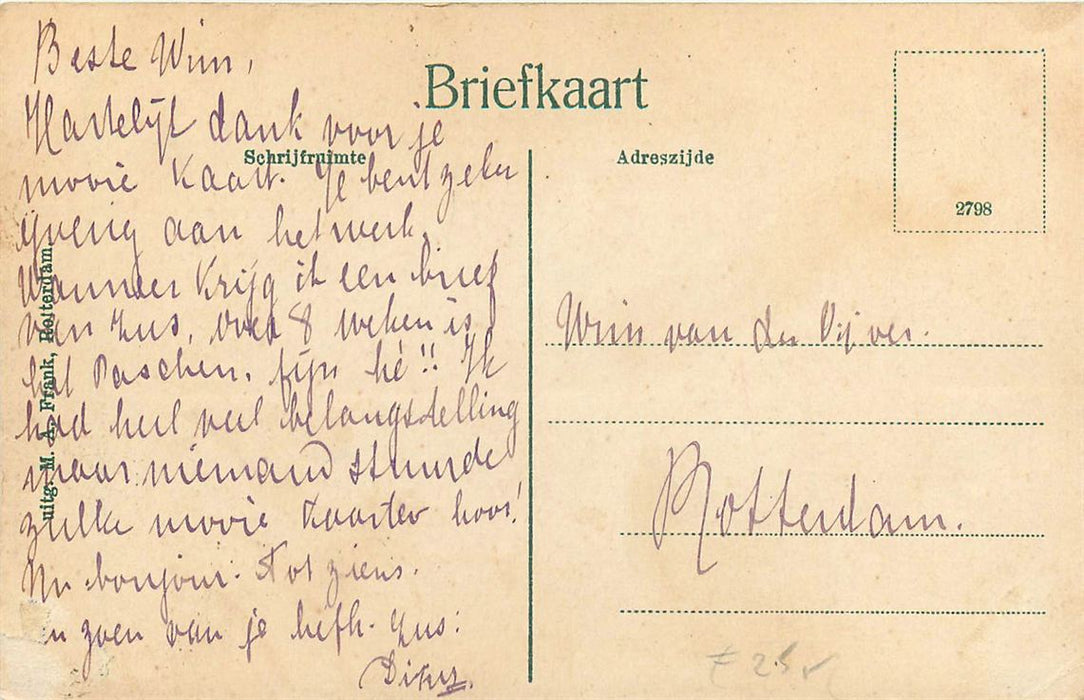 Briefkaart
Schrijfruimte
Adreszijde
2798
uitg. M. A. Frank, Rotterdam.
Beste Wim,
Hartelijk dank voor je
mooie kaart. Je bent zeker
ijverig aan het werk.
Wanneer krijg ik een brief
van Zus, over 8 weken is
het Paschen, fijn hè!! Ik
had heel veel belangstelling
maar niemand stuurde
zulke mooie kaarten hoor!
Nu bonjour. Tot ziens.
en zoen van je liefh. Zus:
Wim van der Vijver.
Rotterdam.